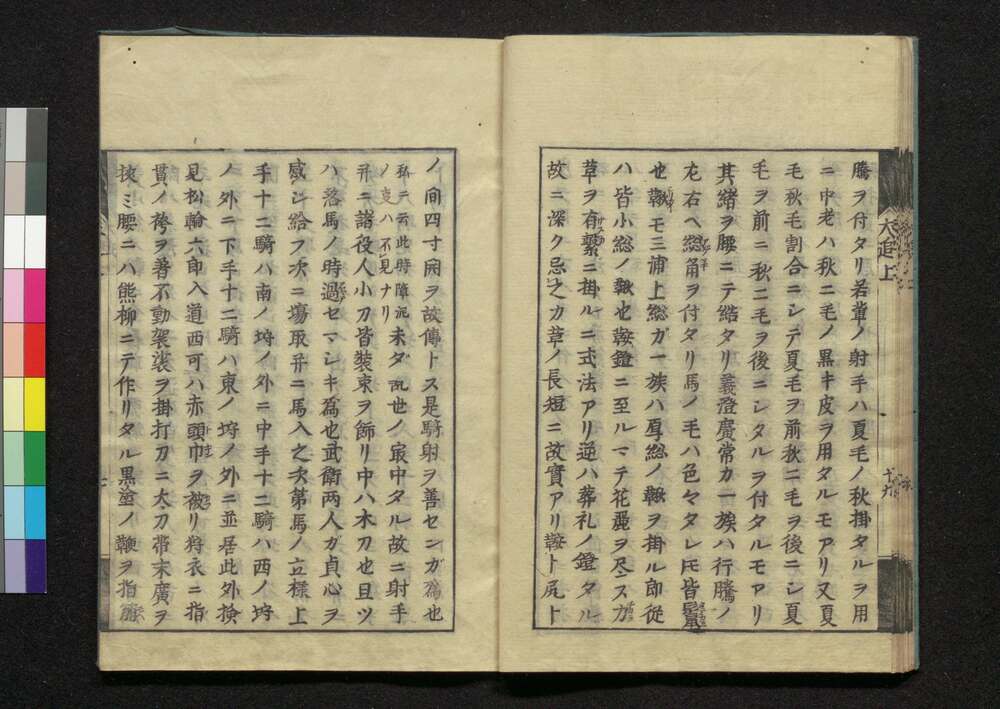 騰ヲ付タリ若輩ノ射手ハ夏毛ノ秋掛タルヲ用
ニ中老ハ秋二毛ノ黒キ皮ヲ用タルモアリ又夏
毛秋毛割合ニシテ夏毛ヲ前秋二毛ヲ後ニシ夏
毛ヲ前ニ秋二毛ヲ後ニシタルヲ付タルモアリ
其緒ヲ腰ニテ結タリ義澄廣常カ一族ハ行騰ノ
左右ヘ総角ヲ付タリ馬ノ毛ハ色々タレ𪜈皆鬣
也鞦モ三浦上総ガ一族ハ厚総ノ鞦ヲ掛ル即従
ハ皆小総ノ鞦也鞍鐙ニ至ルマテ花麗ヲ尽ス力
草ヲ有繋ニ掛ルニ式法アリ逆ハ葬礼ノ鐙タル
故ニ深ク忌之カ草ノ長短ニ故實アリ鞍ト尻ト
犬追上
十六
ノ間四寸開ヲ故傳トス是騎射ヲ善センガ為也
私ニ云此時障泥
ノ支ハ不見ナリ
未ダ乱世ノ最中タル故ニ射手
并ニ諸役人小刀皆装束ヲ飾リ中ハ木刀也且ツ
ハ落馬ノ時過セマシキ為也武衛両人ガ貞心ヲ
感シ給フ次ニ場取并ニ馬入之次第馬ノ立様上
手十二騎ハ南ノ埒ノ外ニ中手十二騎ハ西ノ埒
ノ外ニ下手十二騎ハ東ノ埒ノ外ニ並居此外檢
見松輪六郎入道西可ハ赤頭巾ヲ被リ狩衣ニ指
貫ノ袴ヲ著不動袈裟ヲ掛打刀ニ太刀帯末廣ヲ
挾ミ腰ニハ熊柳ニテ作リタル黒塗ノ鞭ヲ指